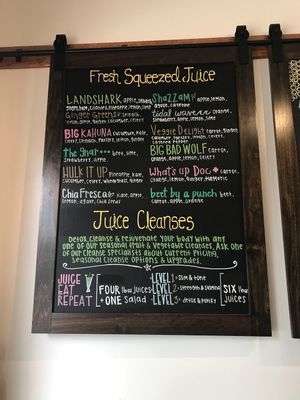 Fresh Squeezed Juice
LANDSHARK apple,
Ginger Greens
BIG KAHUNA cucumber, kale,
celery, spinach, parsley, lemon, ginger
the gnar beet, lime,
strawberry, apple
HULK IT UP pineapple, kale,
cucumber, celery, wheatgrass, ginger
Chia Fresca kale, apple,
lemon, agave, chia seeds
Shazzam! apple, lemon,
agave, cayenne
tidal wave
strawberry, apple, lime
Veggie Delight carrot, ginger
cayenne pepper
BIG BAD WOLF carrot,
orange, apple, lemon, celery
What's up Doc carrot,
orange, lemon, ginger
beet by a punch beet,
carrot, apple, orange
Juice Cleanses
Detox, cleanse & rejuvenate your body with any
one of our seasonal fruit & vegetable cleanses. Ask one
of our cleanse specialists about current pricing,
seasonal cleanse options & upgrades.
JUICE
EAT
REPEAT
FOUR 16oz juices
+ ONE salad
LEVEL 1 = slim & tone
LEVEL 2 = strength & stamina
LEVEL 3 = detox & purify
SIX 16oz
juices